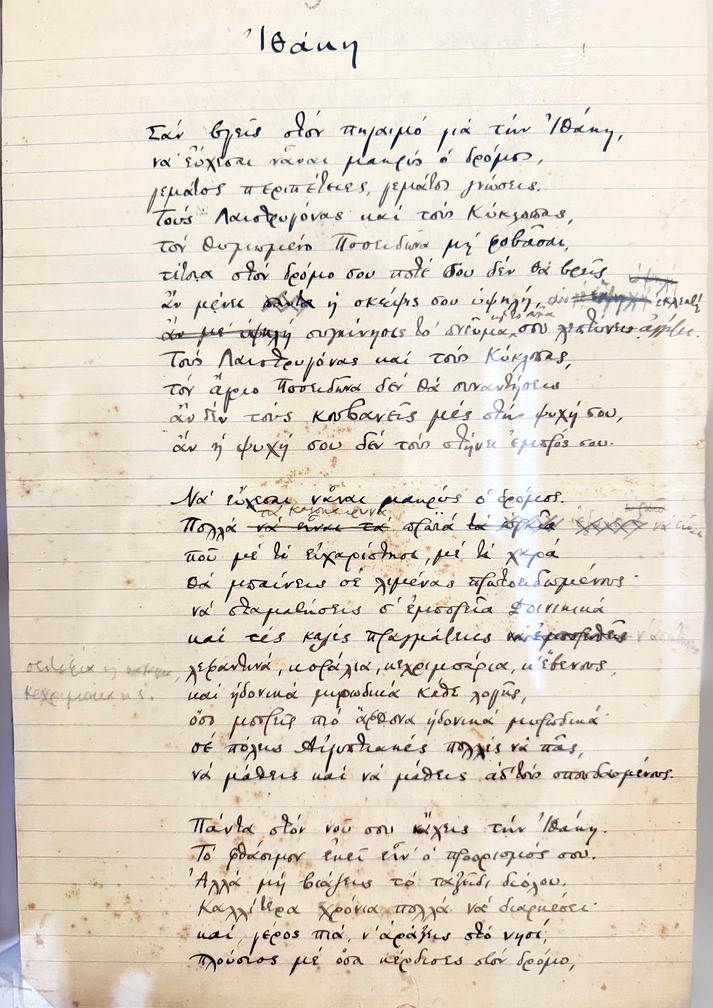 Ἰθάκη
Σάν βγεῖς στόν πηγαιμό γιά τήν Ἰθάκη,
νά εὔχεσαι νἆναι μακρύς ὁ δρόμος,
γεμάτος περιπέτειες, γεμάτος γνώσεις.
Τούς Λαιστρυγόνας καί τούς Κύκλωπας,
τόν θυμωμένο Ποσειδῶνα μή φοβᾶσαι,
τέτοια στόν δρόμο σου ποτέ σου δέν θά βρεῖς
ἄν μένει πάντα ἡ σκέψις σου ὑψηλή, ἐκλεκτή
ἄν μέ ὑψηλή συγκίνησις τό πνεῦμα καί τό σῶμα σου λεπτύνει ἀγγίζει.
Τούς Λαιστρυγόνας καί τούς Κύκλωπας,
τόν ἄγριο Ποσειδῶνα δέν θά συναντήσεις
ἄν δέν τούς κουβανεῖς μές στήν ψυχή σου,
ἄν ἡ ψυχή σου δέν τούς στήνει ἐμπρός σου.
Νά εὔχεσαι νἆναι μακρύς ὁ δρόμος.
τά καλοκαιρινά
Πολλά νά εἶναι τά πρωϊά νά εἶναι
πού μέ τί εὐχαρίστησι, μέ τί χαρά
θά μπαίνεις σέ λιμένας πρωτοειδωμένους·
νά σταματήσεις σ' ἐμπορεῖα Φοινικικά
καί τές καλές πραγμάτειες
σεντέφια
κεχριμπάρια κ' ἔ.
κοράλλια, κεχριμπάρια, κ' ἔβενους,
καί ἡδονικά μυρωδικά κάθε λογῆς,
ὅσο μπορεῖς πιό ἄφθονα ἡδονικά μυρωδικά·
σέ πόλεις Αἰγυπτιακές πολλές νά πᾶς,
νά μάθεις καί νά μάθεις ἀπ' τούς σπουδασμένους.
Πάντα στόν νοῦ σου νἄχεις τήν Ἰθάκη.
Τό φθάσιμον ἐκεῖ εἶν' ὁ προορισμός σου.
Ἀλλά μή βιάζεις τό ταξεῖδι διόλου.
Καλλίτερα χρόνια πολλά νά διαρκέσει·
καί, γέρος πιά, ν' ἀράξεις στό νησί,
πλούσιος μέ ὅσα κέρδισες στόν δρόμο,